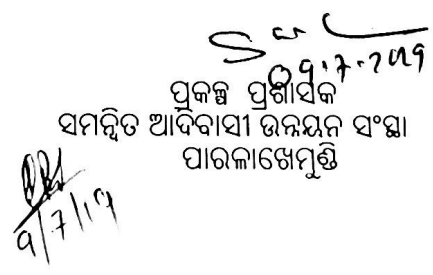 09.7.2019
ପ୍ରକଳ୍ପ ପ୍ରଶାସକ
ସମନ୍ୱିତ ଆଦିବାସୀ ଉନ୍ନୟନ ସଂସ୍ଥା
ପାରଳାଖେମୁଣ୍ଡି
9/7/19